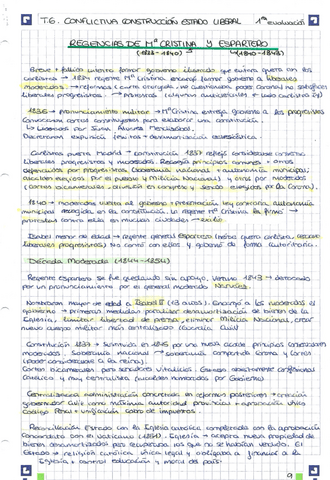 T.6. CONFLICTIVA CONSTRUCCIÓN ESTADO LIBERAL 1ª evaluación
REGENCIAS DE Mª CRISTINA Y ESPARTERO
(1833-1840) (1840-1843)
Breve + fallido intento formar gobierno que entra guerra con los
carlistas → 1834 regente Mª Cristina encargó formar gobierno a liberales
moderados → reforma + carta otorgada no cuestionaba poder Coronal no satisface
liberales progresistas → protestas
1836 → pronunciamiento militar → Mª Cristina entrega gobierno a los progresistas
Convocaron cortes constituyentes para elaborar una constitución.
Liderados por Juan Álvarez Mendizábal.
Decretaron expulsión frailes + desamortización eclesiástica
Carlistas guerra Madrid → constitución 1837 reflejó considerable consenso
liberales progresistas y moderados. Recogía principios comunes + otros
defendidos por progresistas (soberanía nacional + autonomía municipal;
alcaldes elegidos por el pueblo y Milicia Nacional) y otros por moderados
(cortes bicamerales: división en congreso y senado elegidos por la Corona).
1840 → moderados vuelta al gobierno + presentación ley contraria autonomía
municipal recogida en la constitución. La regente Mª Cristina la firmó →
protestas contra ella en muchas ciudades → exilio
Isabel menor de edad → regente general Espartero (héroe guerra carlista,
liberales progresistas). No contó con ellos y gobernó de forma autoritaria.
Década Moderada (1844-1854)
Regente Espartero se fue quedando sin apoyo. Verano 1843 → derrocado
por un pronunciamiento por el general moderado Narváez.
Nombraron mayor de edad a Isabel II (13 años). Encargó a los moderados el
gobierno → primeras medidas: paralizar desamortización de bienes de la
Iglesia, limitar libertad de prensa, eliminar Milicia Nacional, crear
nuevo cuerpo militar más centralizado (Guardia Civil)
Constitución 1837 → sustituida en 1845 por una nueva acorde principios
moderados. Soberanía Nacional → soberanía compartida Corona y Cortes
(poder considerable a la reina).
Cortes bicamerales, pero senadores vitalicios. Estado confesional
católico y muy centralista (alcaldes nombrados por Gobierno)
Centralización administración concretada en reformas posteriores → creación
gobernador Civil como máxima autoridad provincial + aprobación único
Código Penal + unificación cobro de impuestos.
Reconciliación Estado con la Iglesia católica completada con la aprobación
Concordato con el Vaticano (1851). Iglesia → acepta nueva propiedad de
bienes desamortizados pero recuperaba los que no se habían vendido. El
Estado → religión católica única legal y obligaba a financiar a la
Iglesia + control educación y moral del país.
9